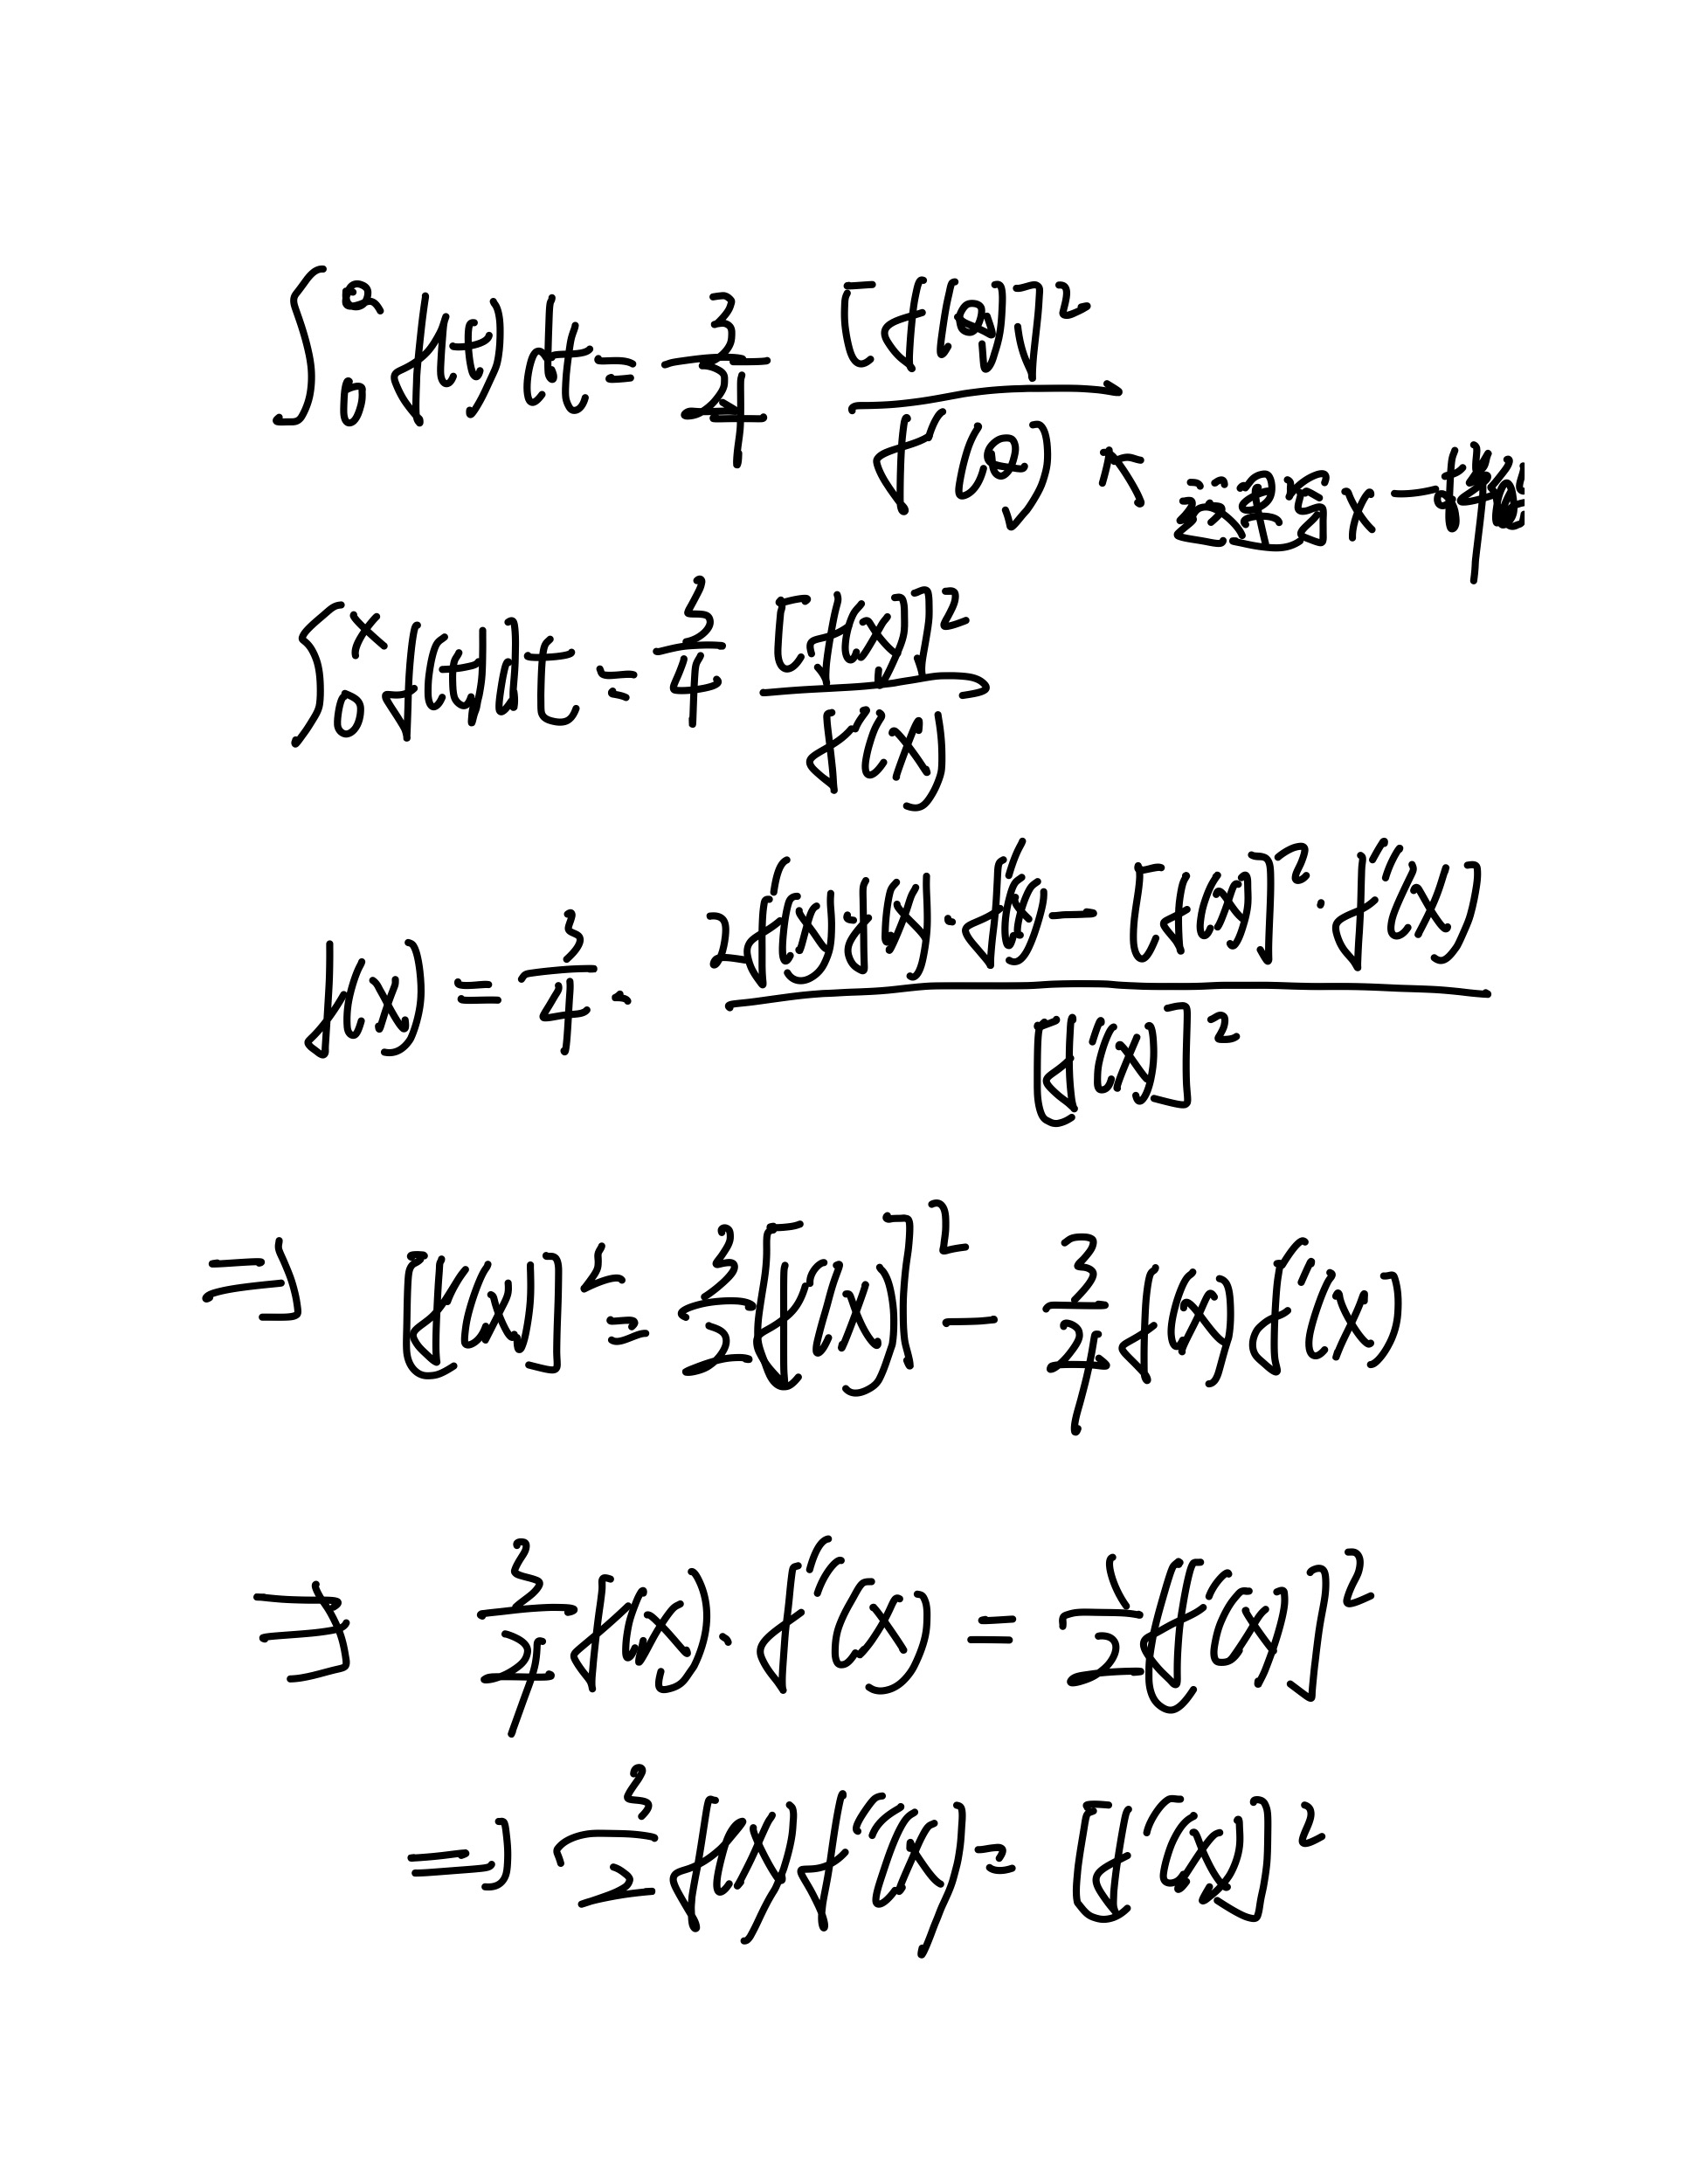 ∫₀ᵃ f(t) dt = 3/4 [f(a)]² / f'(a)
∫₀ˣ f(t) dt = 3/4 [f(x)]² / f'(x)
f(x) = 3/4 · (2f(x) · f'(x) · f'(x) − [f(x)]² · f''(x)) / [f'(x)]²
⇒ [f'(x)]² = 3/2 [f'(x)]² − 3/4 f(x) f''(x)
⇒ 3/4 f(x) · f''(x) = 1/2 [f'(x)]²
⇒ 3/2 f(x) f''(x) = [f'(x)]²